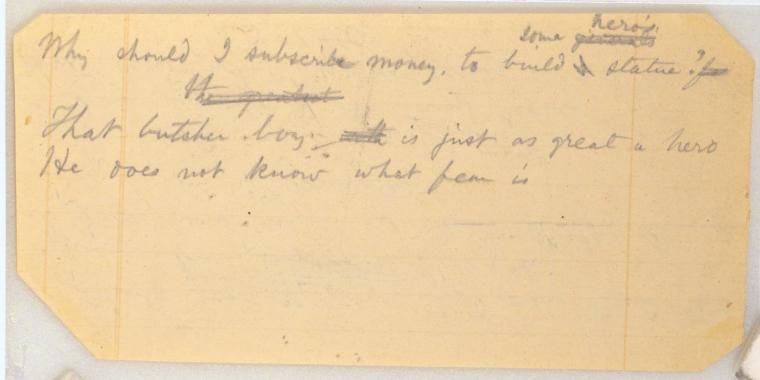 some hero's
Why should I subscribe money, to build statue?
That butcher boy, is just as great a hero
He does not know what fear is